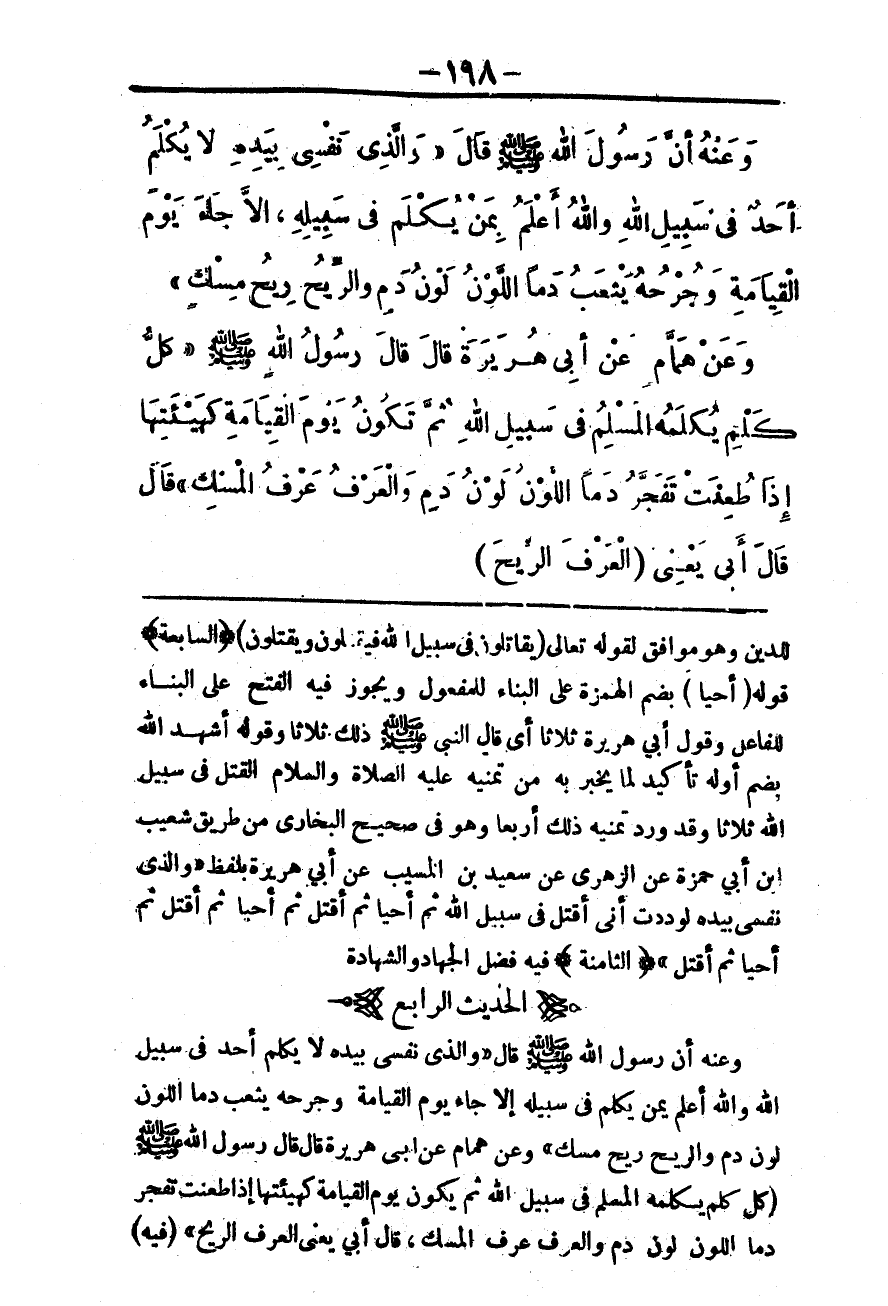 — ١٩٨ —
وَعَنْهُ أَنَّ رَسُولَ اللهِ ﷺ قَالَ « وَالَّذِى نَفْسِى بِيَدِهِ لَا يُكْلَمُ
أَحَدٌ فى سَبِيلِ اللهِ واللهُ أَعْلَمُ بِمَنْ يُكْلَم فى سَبِيلِهِ ، الاَّ جَاءَ يَوْمَ
الْقِيَامَةِ وَجُرْحُهُ يَثْعَبُ دَماً اللَّوْنُ لَوْنُ دَمٍ والرِّيحُ رِيحُ مِسْكٍ »
وَعَنْ هَمَّامٍ عَنْ أَبِى هُرَيْرَةَ قالَ قالَ رسُولُ اللهِ ﷺ « كلُّ
كَلْمٍ يُكلَمُهُ الْمُسْلِمُ فى سَبِيلِ اللهِ ثُمَّ تَكُونُ يَوْمَ الْقِيَامَةِ كَهَيْئَتِهَا
إِذَا طُعِنَتْ تَفَجَّرُ دَماً اللَّوْنُ لَوْنُ دَمٍ وَالْعَرْفُ عَرْفُ الْمِسْكِ » قَالَ
قَالَ أَبى يَعْنِى (الْعَرْفَ الرِّيحَ)
للدين وهو موافق لقوله تعالى (يقاتلون فى سبيل الله فيقتلون ويقتلون) ﴿السابعة﴾
قوله (أحيا) بضم الهمزة على البناء للمفعول ويجوز فيه الفتح على البناء
للفاعل وقول أبي هريرة ثلاثا أى قال النبى ﷺ ذلك ثلاثا وقوله أشهد الله
بضم أوله تأكيد لما يخبر به من تمنيه عليه الصلاة والسلام القتل فى سبيل
الله ثلاثا وقد ورد تمنيه ذلك أربعا وهو فى صحيح البخارى من طريق شعيب
ابن أبي حمزة عن الزهرى عن سعيد بن المسيب عن أبي هريرة بلفظ « والذى
نفسى بيده لوددت أنى أقتل فى سبيل الله ثم أحيا ثم أقتل ثم أحيا ثم أقتل ثم
أحيا ثم أقتل » ﴿ الثامنة ﴾ فيه فضل الجهاد والشهادة
الحديث الرابع
وعنه أن رسول الله ﷺ قال « والذى نفسى بيده لا يكلم أحد فى سبيل
الله والله أعلم بمن يكلم فى سبيله إلا جاء يوم القيامة وجرحه يثعب دما اللون
لون دم والريح ريح مسك » وعن همام عن ابى هريرة قال قال رسول الله ﷺ
(كل كلم يكلمه المسلم فى سبيل الله ثم يكون يوم القيامة كهيئتها إذا طعنت تفجر
دما اللون لون دم والعرف عرف المسك ، قال أبي يعنى العرف الريح » (فيه)